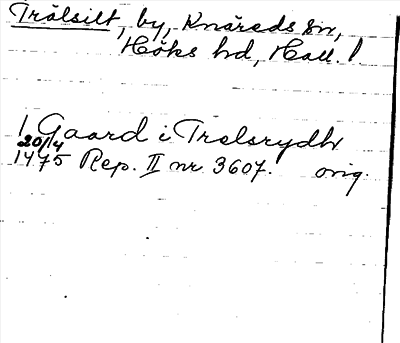 Trälsilt, by, Knäreds sn,
Höks hd, Hall. !
1 Gaard i Trelsrydh
20/4
1475 Rep. II nr 3607. orig.